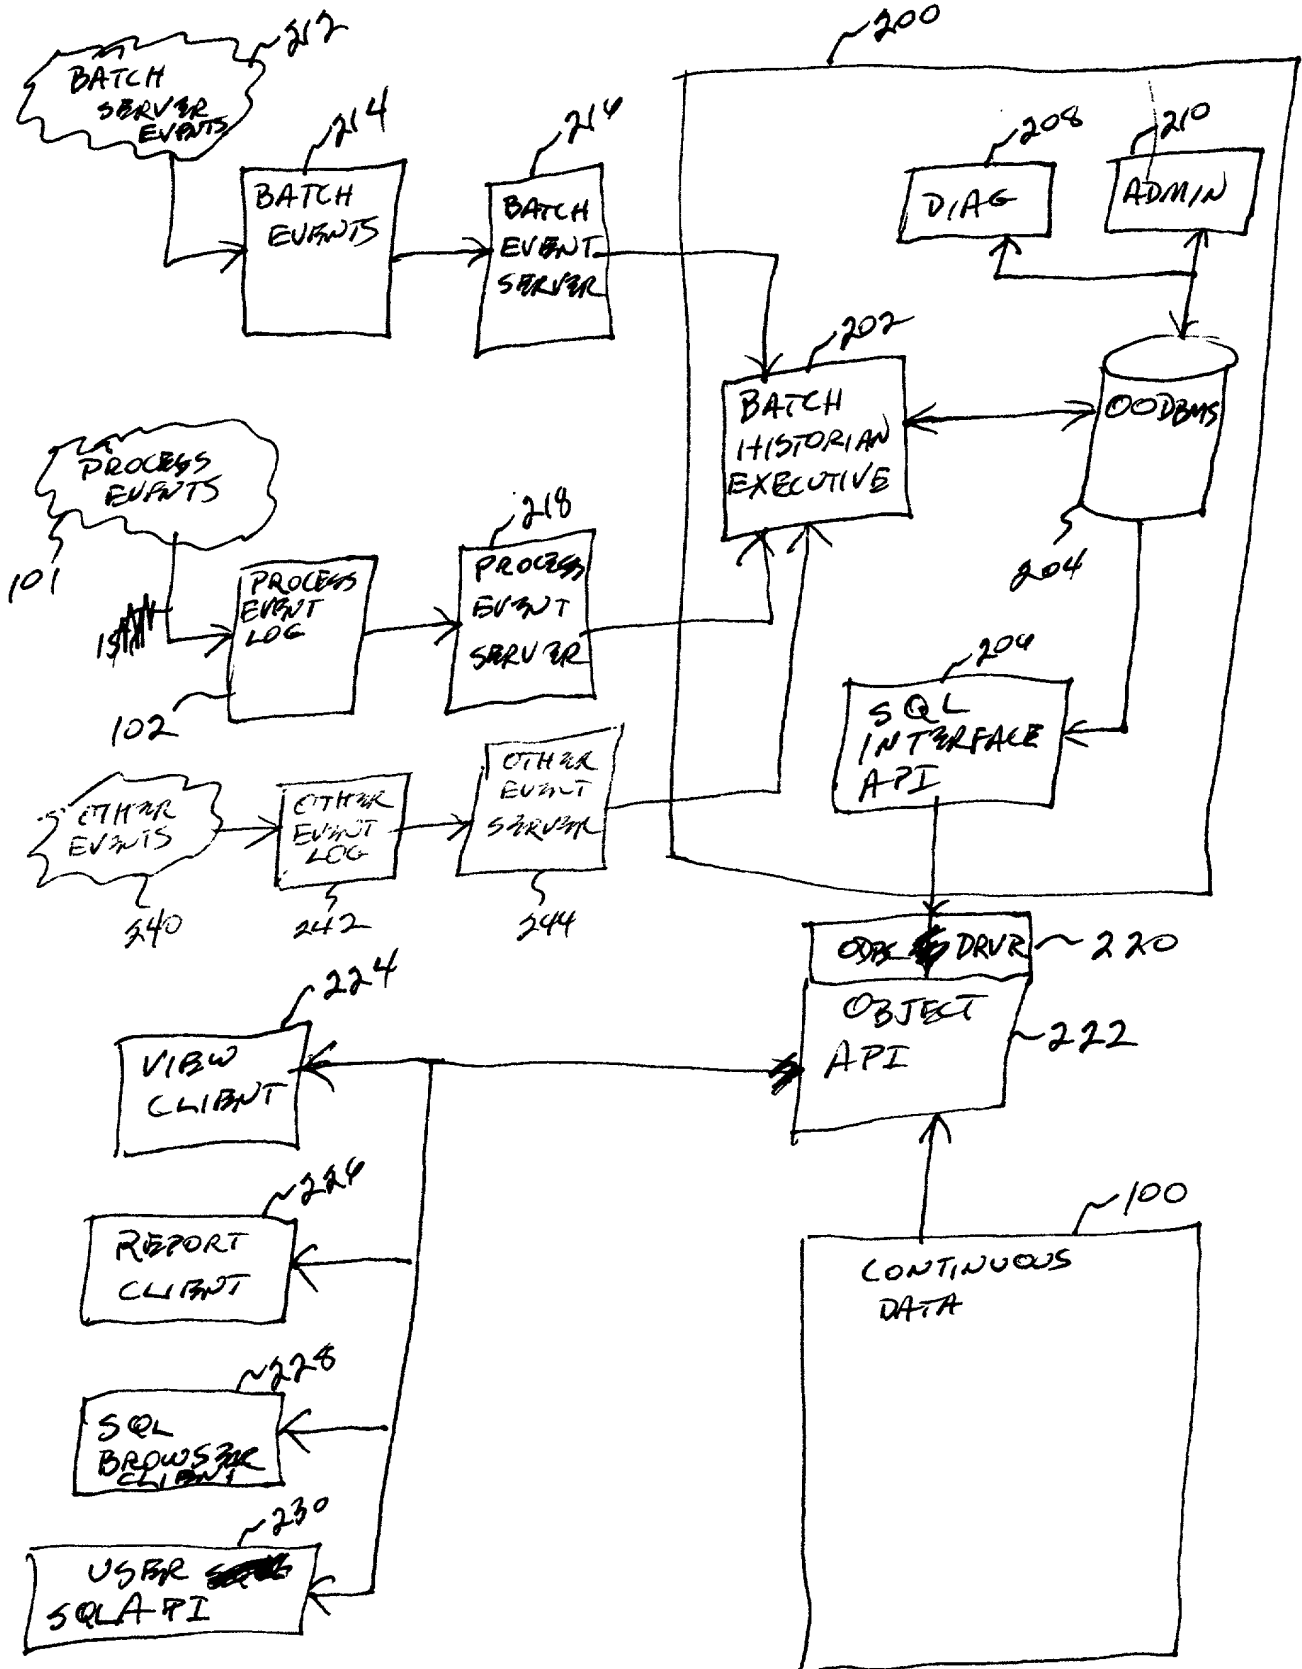 212
200
BATCH
SERVER
EVENTS
214
216
208
210
BATCH
EVENTS
BATCH
EVENT
SERVER
DIAG
ADMIN
202
BATCH
HISTORIAN
EXECUTIVE
OODBMS
204
PROCESS
EVENTS
101
218
PROCESS
EVENT
LOG
102
PROCESS
EVENT
SERVER
206
SQL
INTERFACE
API
OTHER
EVENTS
240
OTHER
EVENT
LOG
242
OTHER
EVENT
SERVER
244
ODBC DRVR
220
OBJECT
API
222
224
VIEW
CLIENT
226
REPORT
CLIENT
228
SQL
BROWSER
CLIENT
230
USER
SQL API
100
CONTINUOUS
DATA